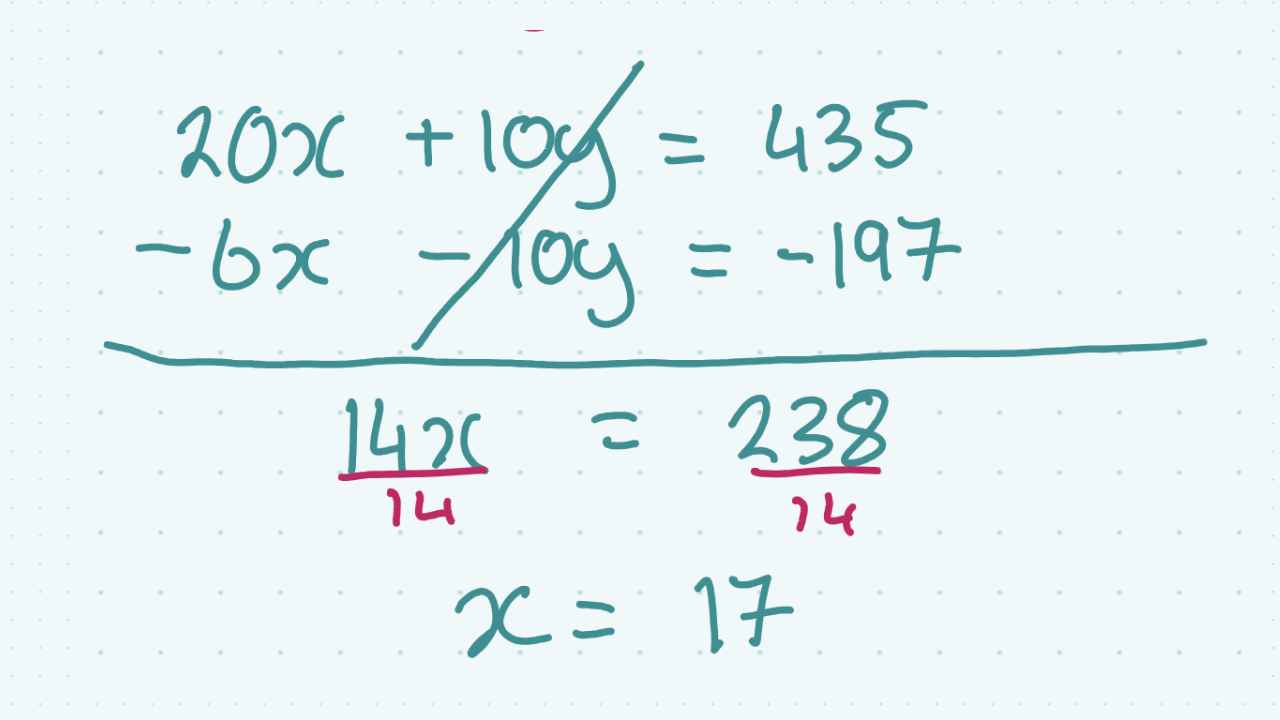 20x + 10y = 435
-6x - 10y = -197
14x = 238
14 14
x = 17